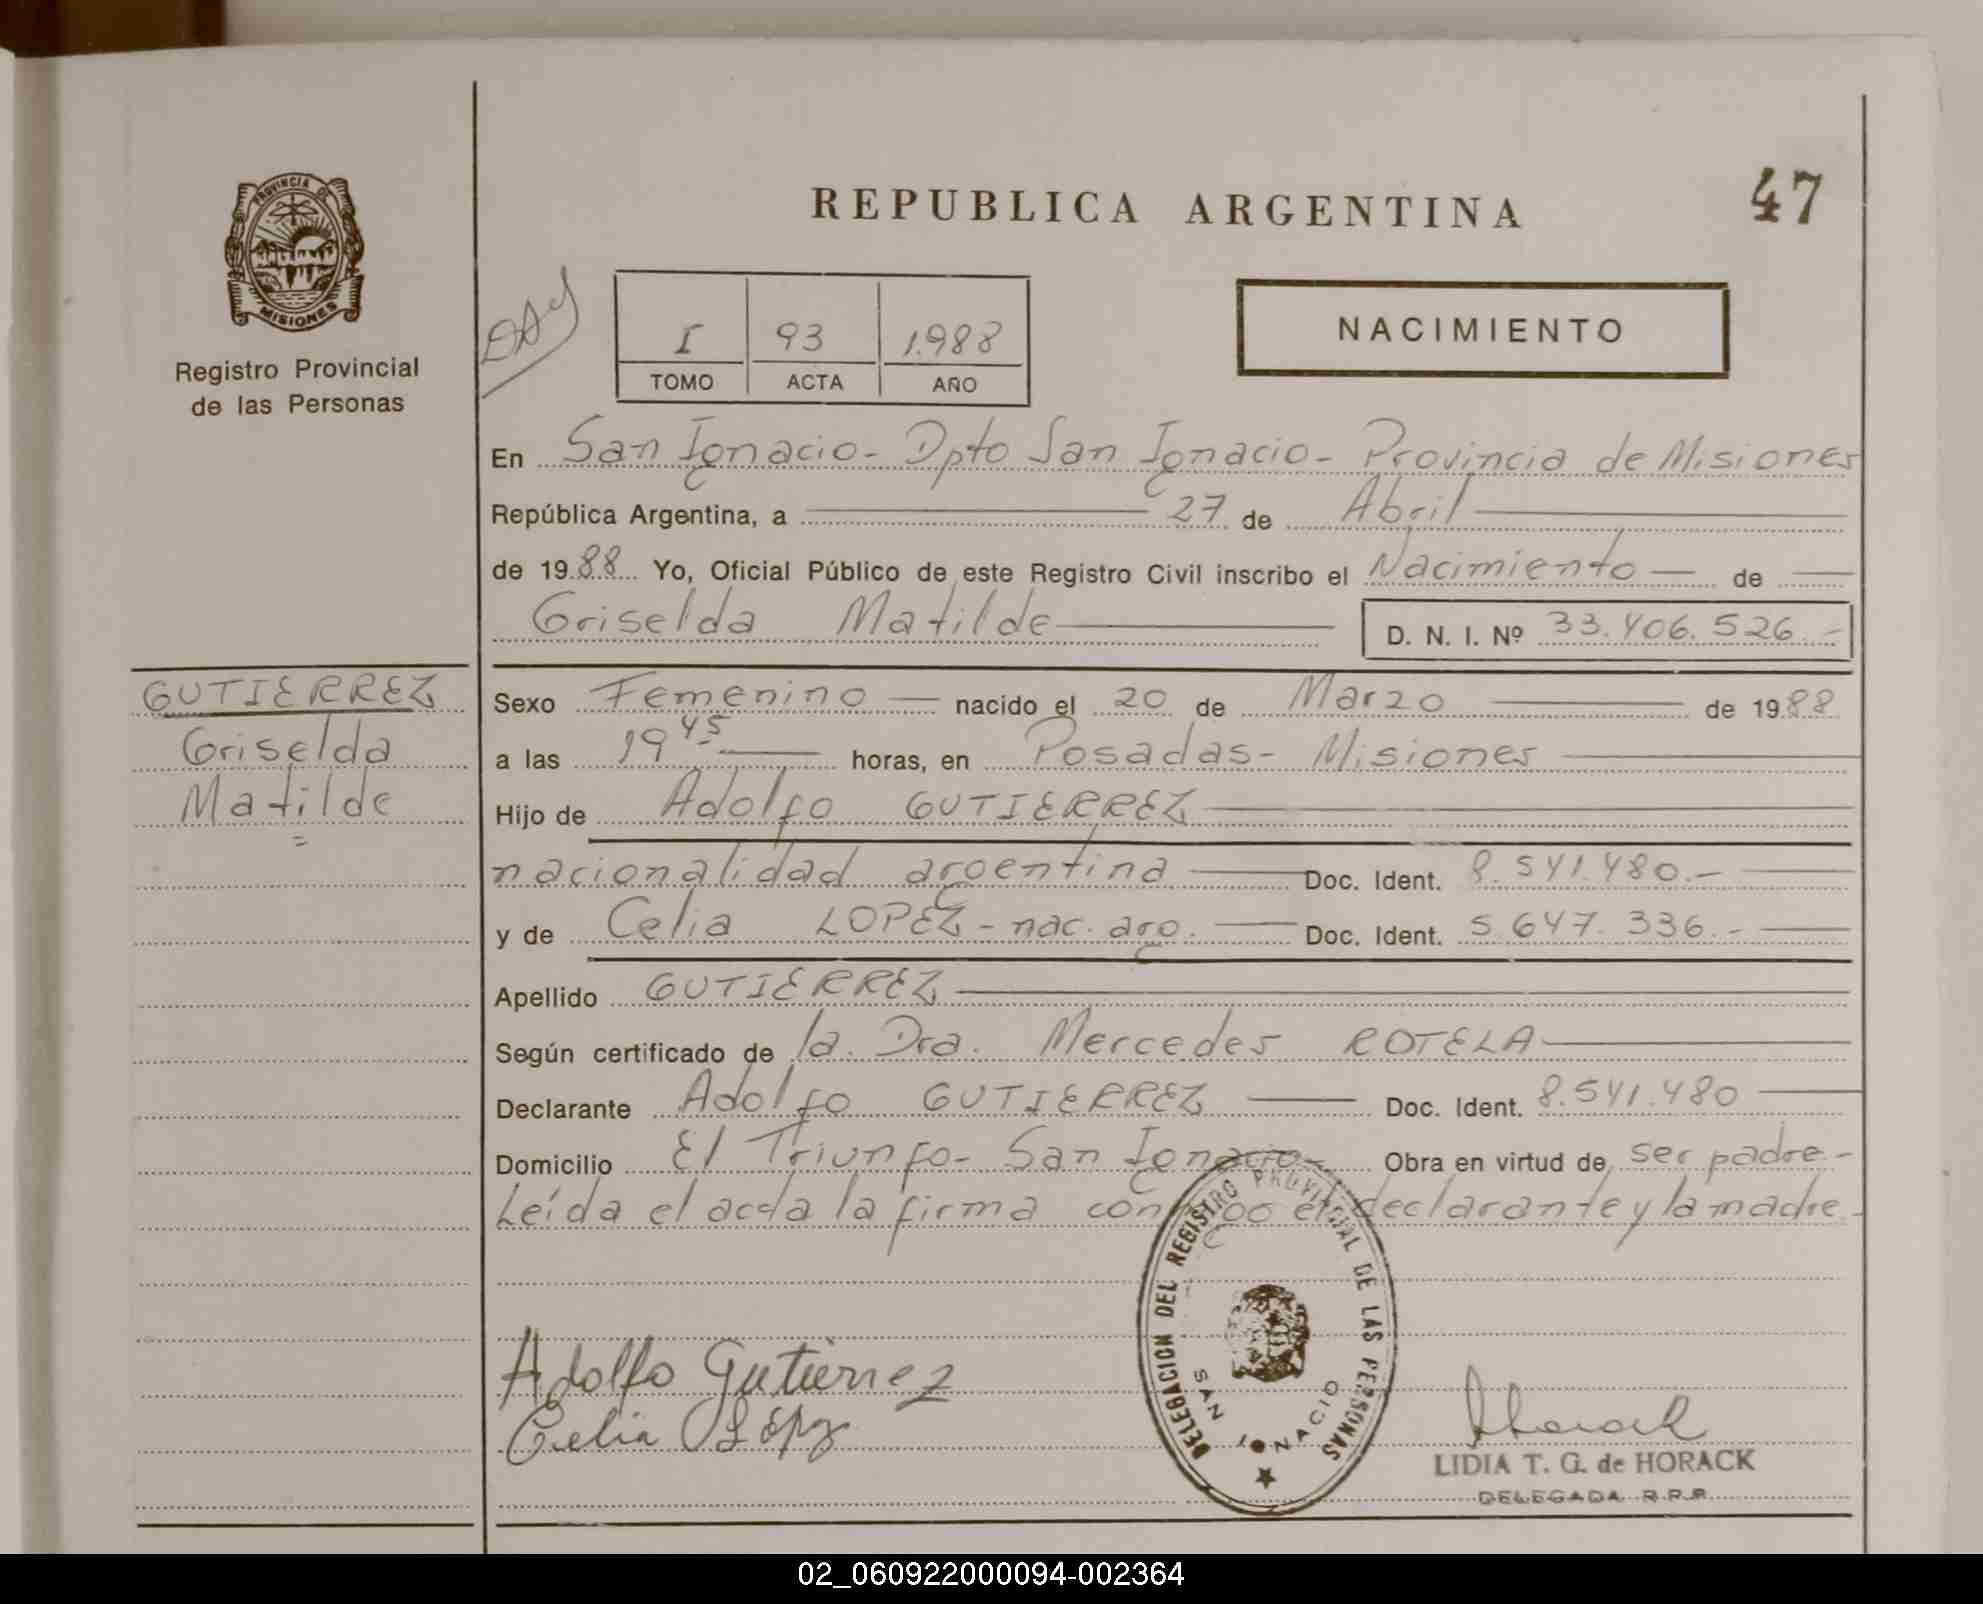 REPUBLICA ARGENTINA
47
PROVINCIA DE
MISIONES
Registro Provincial
de las Personas
I 93 1.988
TOMO ACTA AÑO
NACIMIENTO
En San Ignacio - Dpto San Ignacio - Provincia de Misiones
República Argentina, a 27 de Abril
de 1988 Yo, Oficial Público de este Registro Civil inscribo el Nacimiento de
Griselda Matilde D. N. I. Nº 33.406.526.-
GUTIERREZ
Griselda
Matilde
Sexo Femenino nacido el 20 de Marzo de 1988
a las 19 45 horas, en Posadas - Misiones
Hijo de Adolfo GUTIERREZ
nacionalidad argentina Doc. Ident. 8.541.480.-
y de Celia LOPEZ - nac. arg. Doc. Ident. 5.647.336.-
Apellido GUTIERREZ
Según certificado de la. Dra. Mercedes ROTELA
Declarante Adolfo GUTIERREZ Doc. Ident. 8.541.480
Domicilio El Triunfo - San Ignacio - Obra en virtud de ser padre -
Leída el acta la firma conmigo el declarante y la madre -
DELEGACION DEL REGISTRO PROVINCIAL DE LAS PERSONAS
SAN IGNACIO
Adolfo Gutierrez
Celia López
Horack
LIDIA T. G. de HORACK
DELEGADA R.P.P.
02_060922000094-002364